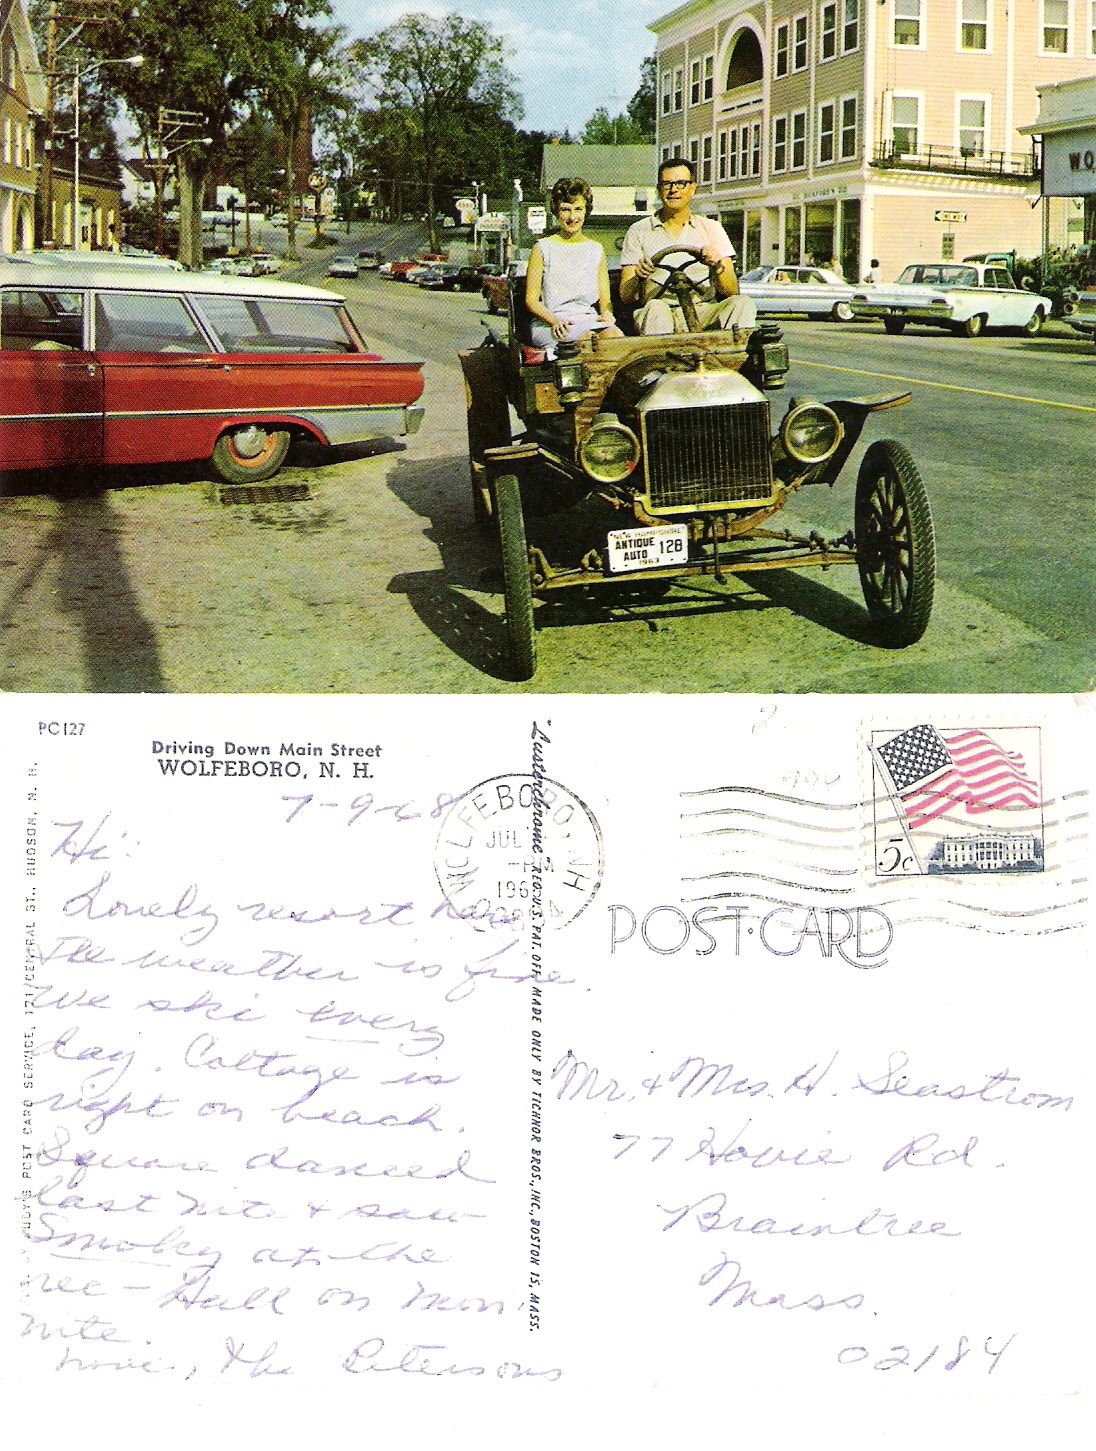 WO
ONE WAY
"NEW HAMPSHIRE"
ANTIQUE
AUTO 128
1963
PC127
Driving Down Main Street
WOLFEBORO, N. H.
7-9-68
Hi:
Lovely resort here
The weather is fine.
We ski every
day. Cottage is
right on beach.
Square danced
last nite & saw
Smoky at the
rec-Hall on Mon.
nite.
Love, The Petersons
PUB. BY RUDY'S POST CARD SERVICE, 171 CENTRAL ST., HUDSON, N. H.
"Lusterchrome" REG. U.S. PAT. OFF. MADE ONLY BY TICHNOR BROS., INC., BOSTON 15, MASS.
WOLFEBORO, NH
JUL
PM
196
5c
POST CARD
Mr. & Mrs. H. Seastrom
77 Hovie Rd.
Braintree
Mass.
02184